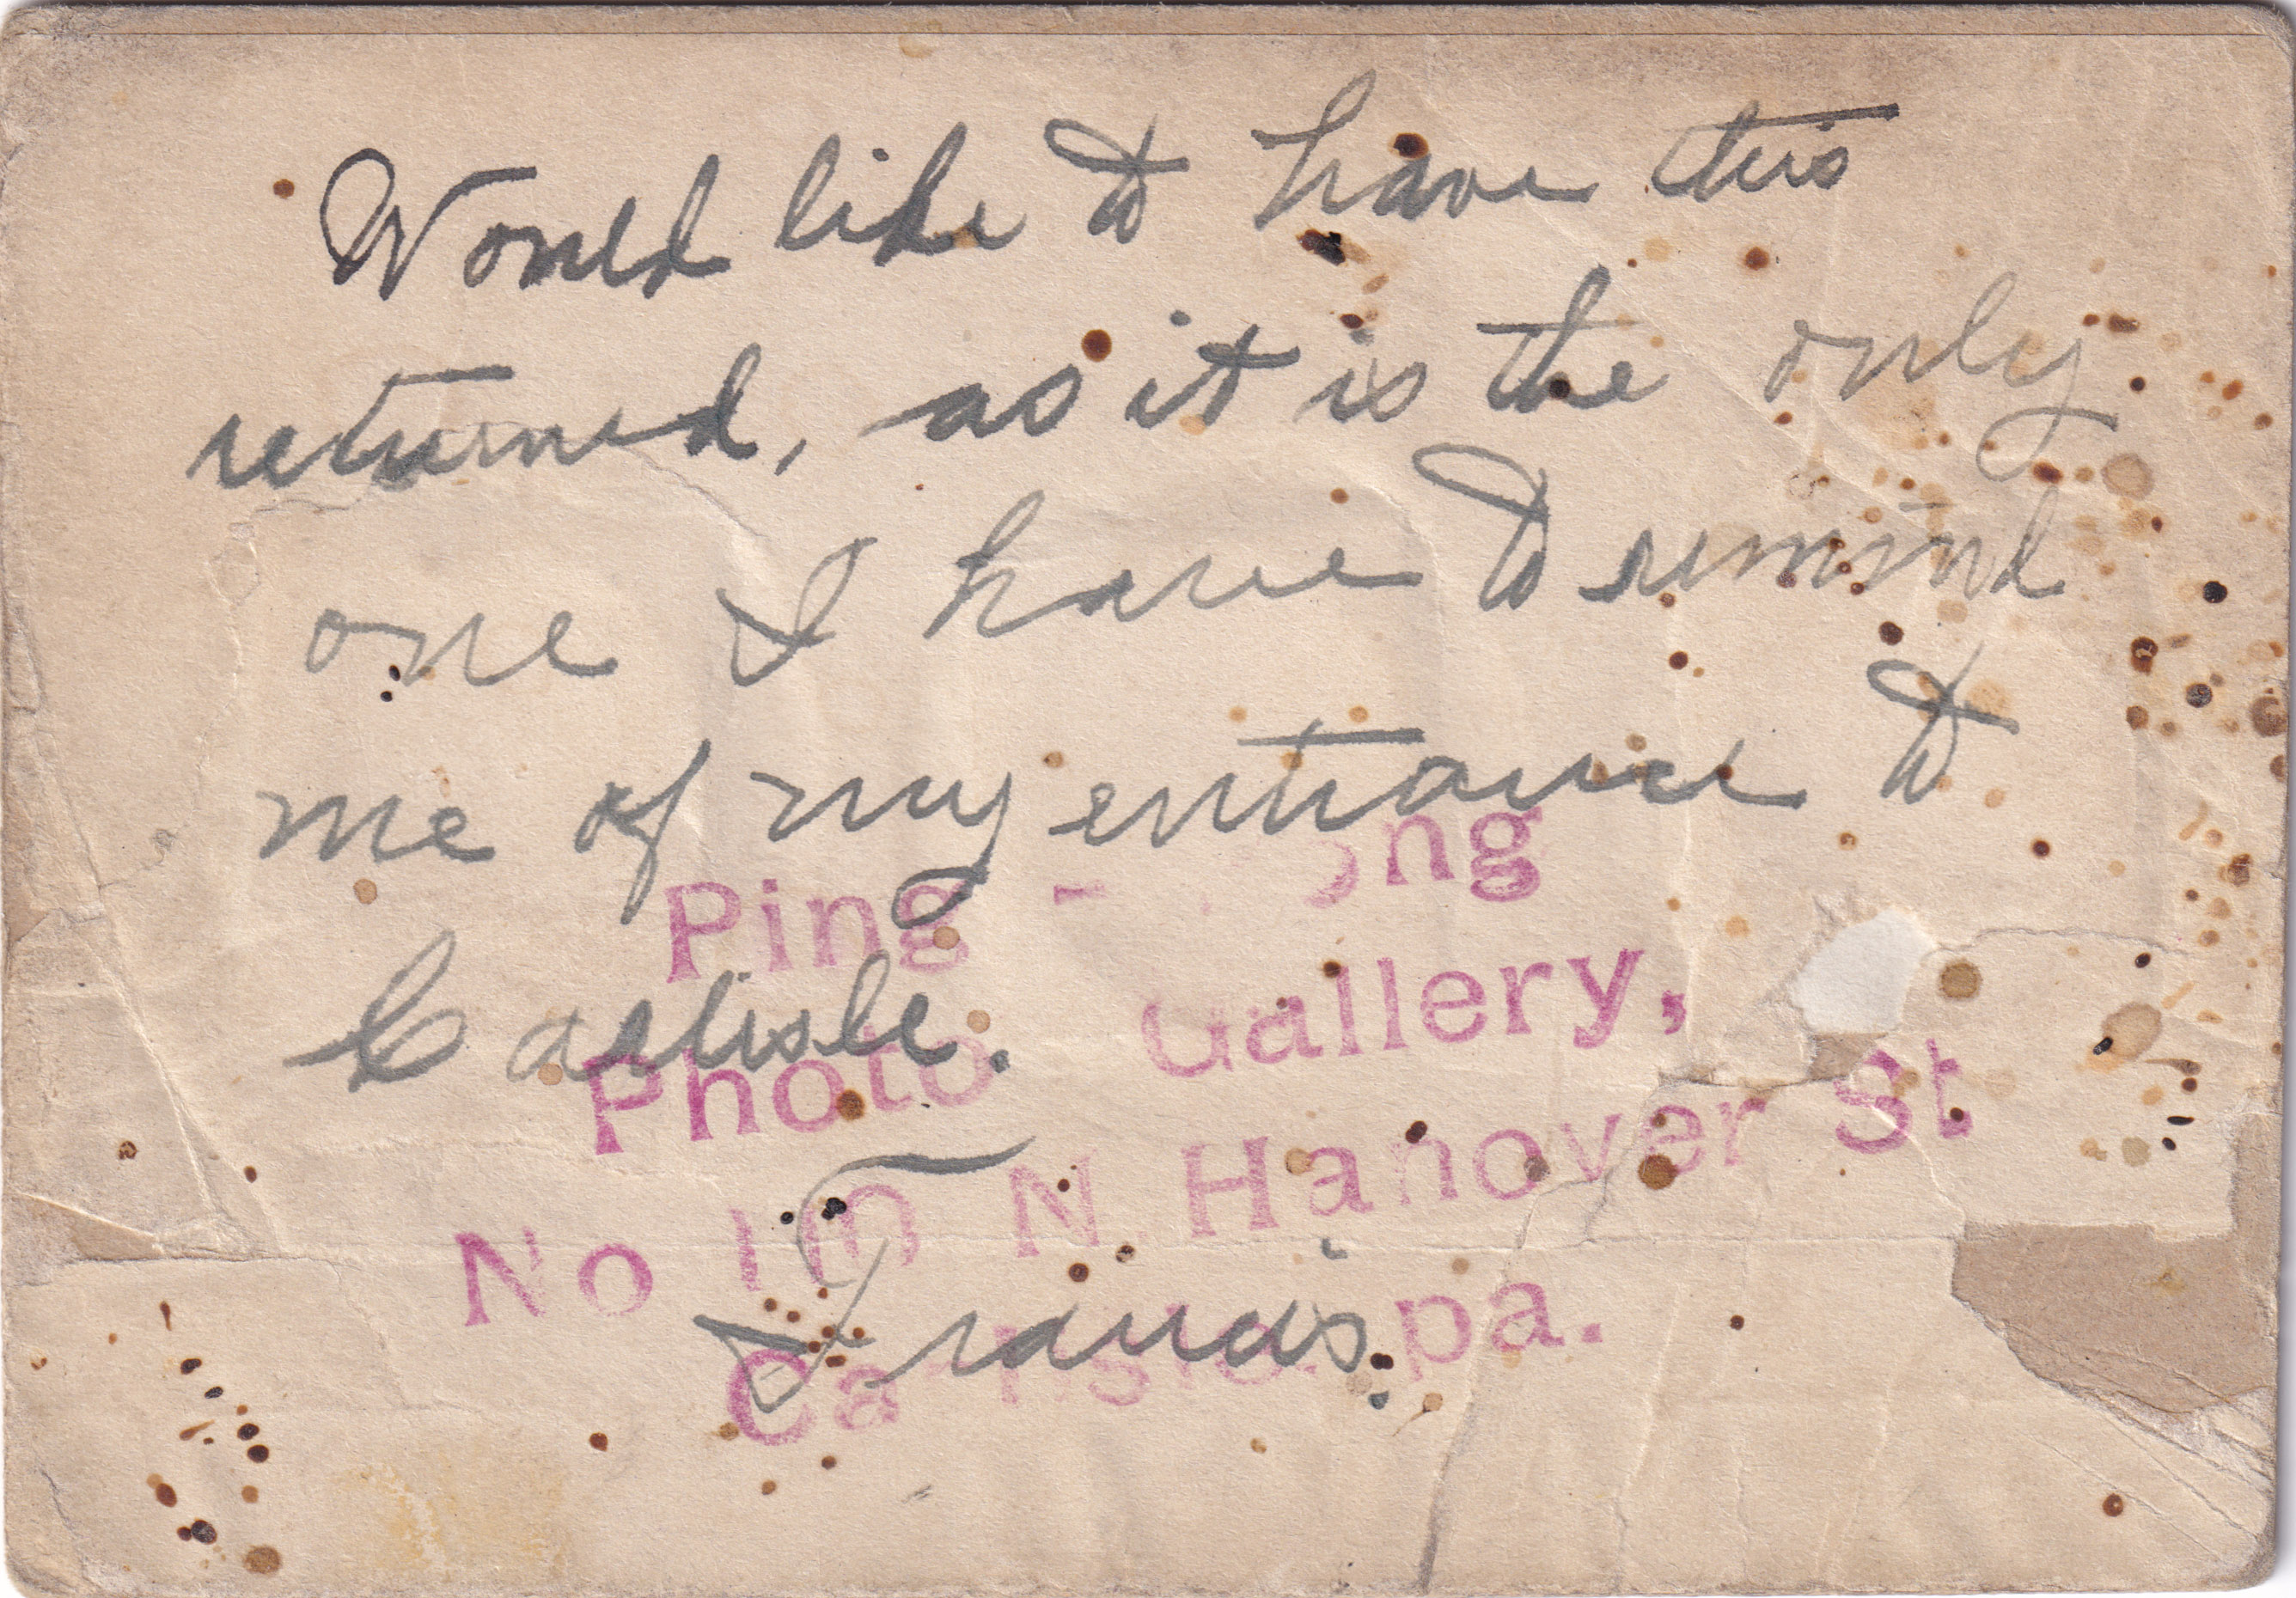 Would like to have this
returned, as it is the only
one I have to remind
me of my entrance to
Carlisle.
Francis.
Ping - ong
Photo Gallery,
No N. Hanover St
Carlisle pa.